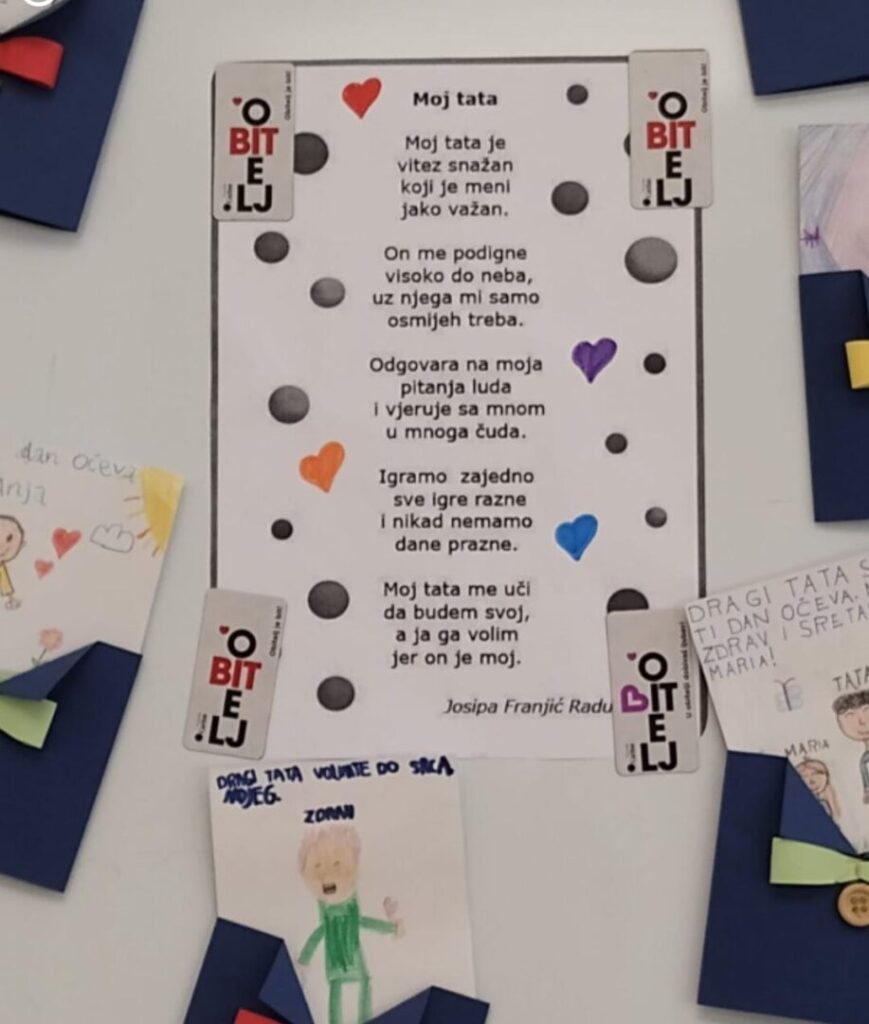 Moj tata
Moj tata je
vitez snažan
koji je meni
jako važan.
On me podigne
visoko do neba,
uz njega mi samo
osmijeh treba.
Odgovara na moja
pitanja luda
i vjeruje sa mnom
u mnoga čuda.
Igramo zajedno
sve igre razne
i nikad nemamo
dane prazne.
Moj tata me uči
da budem svoj,
a ja ga volim
jer on je moj.
Josipa Franjić Radu
O
BIT
E
LJ
Obitelj je bit!
O
BIT
E
LJ
Obitelj je bit!
O
BIT
E
LJ
Obitelj je bit!
O
BIT
E
LJ
dan očeva
DRAGI TATA
TI DAN OČEVA.
ZDRAV I SRETA
MARIA!
TATA
MARIA
DRAGI TATA VOLIMTE DO SRCA
MOJEG.